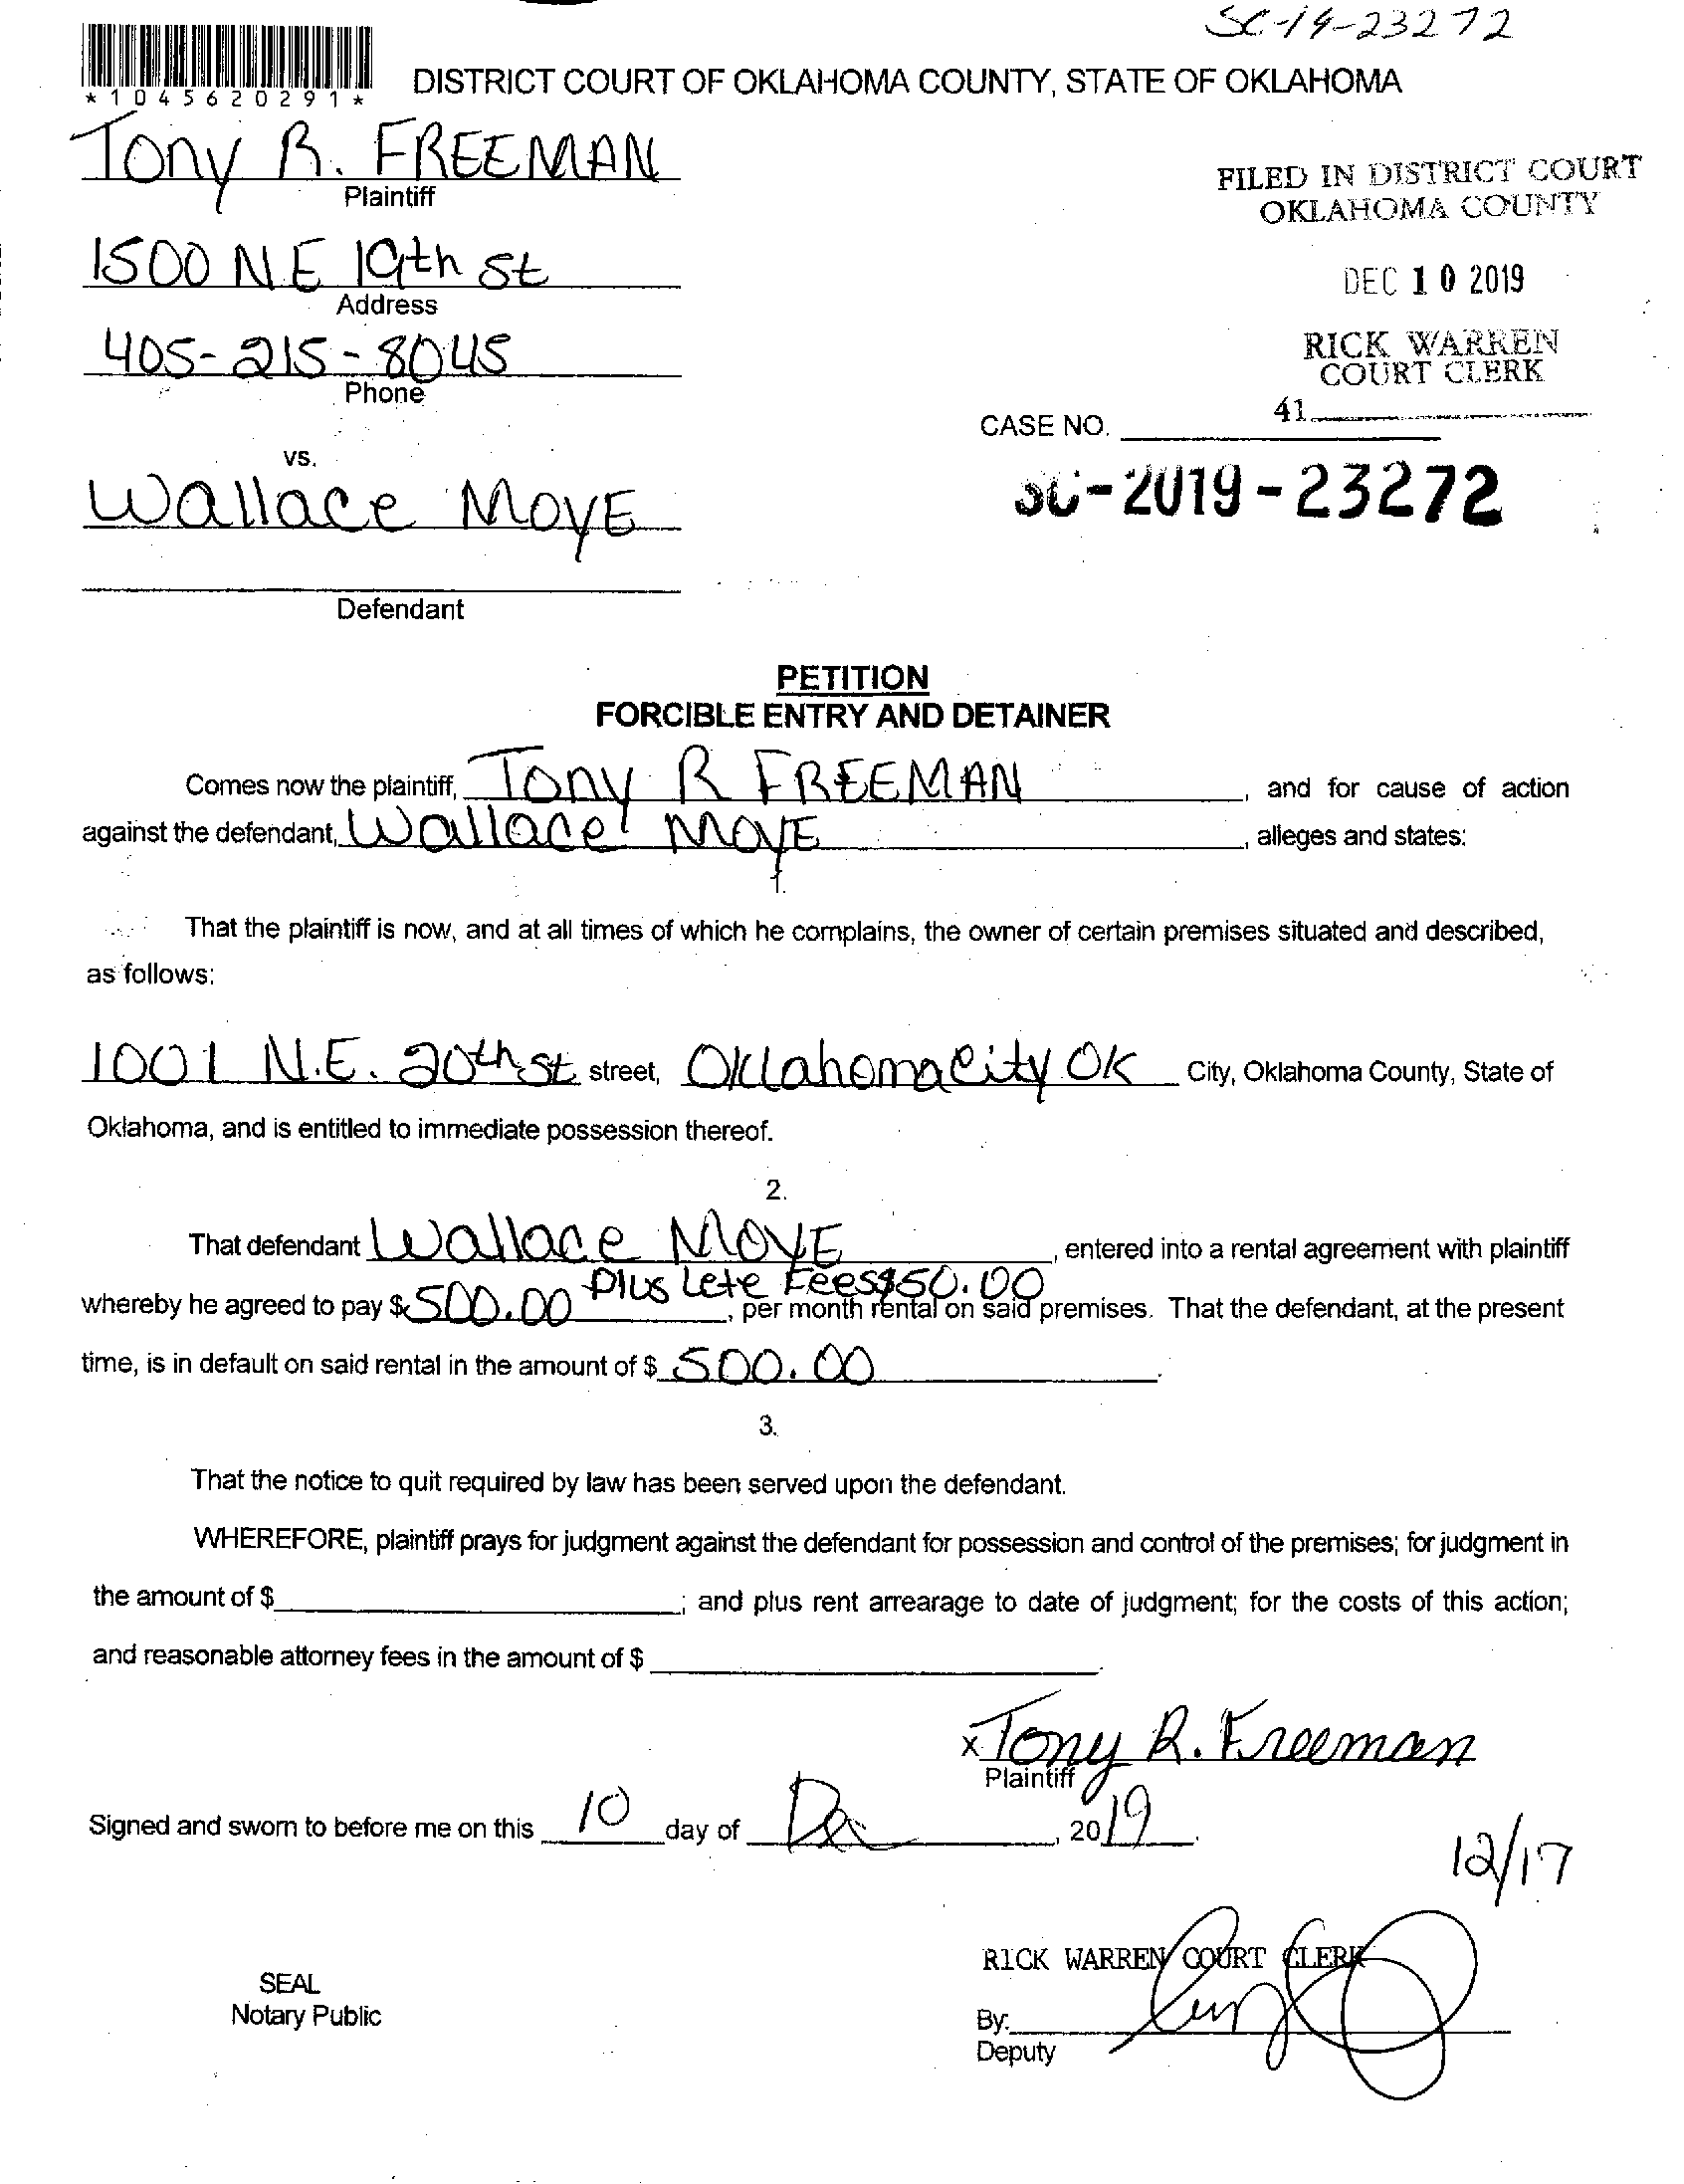 SC-19-23272
*1045620291*
DISTRICT COURT OF OKLAHOMA COUNTY, STATE OF OKLAHOMA
Tony R. FREEMAN
Plaintiff
FILED IN DISTRICT COURT
OKLAHOMA COUNTY
1500 N.E 19th St
Address
DEC 10 2019
405-215-8045
Phone
RICK WARREN
COURT CLERK
41
CASE NO.
vs.
SC-2019-23272
Wallace MOYE
Defendant
PETITION
FORCIBLE ENTRY AND DETAINER
Comes now the plaintiff, Tony R FREEMAN, and for cause of action
against the defendant, Wallace MOYE, alleges and states:
1.
That the plaintiff is now, and at all times of which he complains, the owner of certain premises situated and described,
as follows:
1001 N.E. 20th St street, Oklahoma City OK City, Oklahoma County, State of
Oklahoma, and is entitled to immediate possession thereof.
2.
That defendant Wallace MOYE, entered into a rental agreement with plaintiff
Plus Lete Fees $50.00
whereby he agreed to pay $ 500.00, per month rental on said premises. That the defendant, at the present
time, is in default on said rental in the amount of $ 500.00.
3.
That the notice to quit required by law has been served upon the defendant.
WHEREFORE, plaintiff prays for judgment against the defendant for possession and control of the premises; for judgment in
the amount of $ ; and plus rent arrearage to date of judgment; for the costs of this action;
and reasonable attorney fees in the amount of $ .
x Tony R. Freeman
Plaintiff
Signed and sworn to before me on this 10 day of Dec, 2019.
12/17
RICK WARREN COURT CLERK
SEAL
Notary Public
By:
Deputy